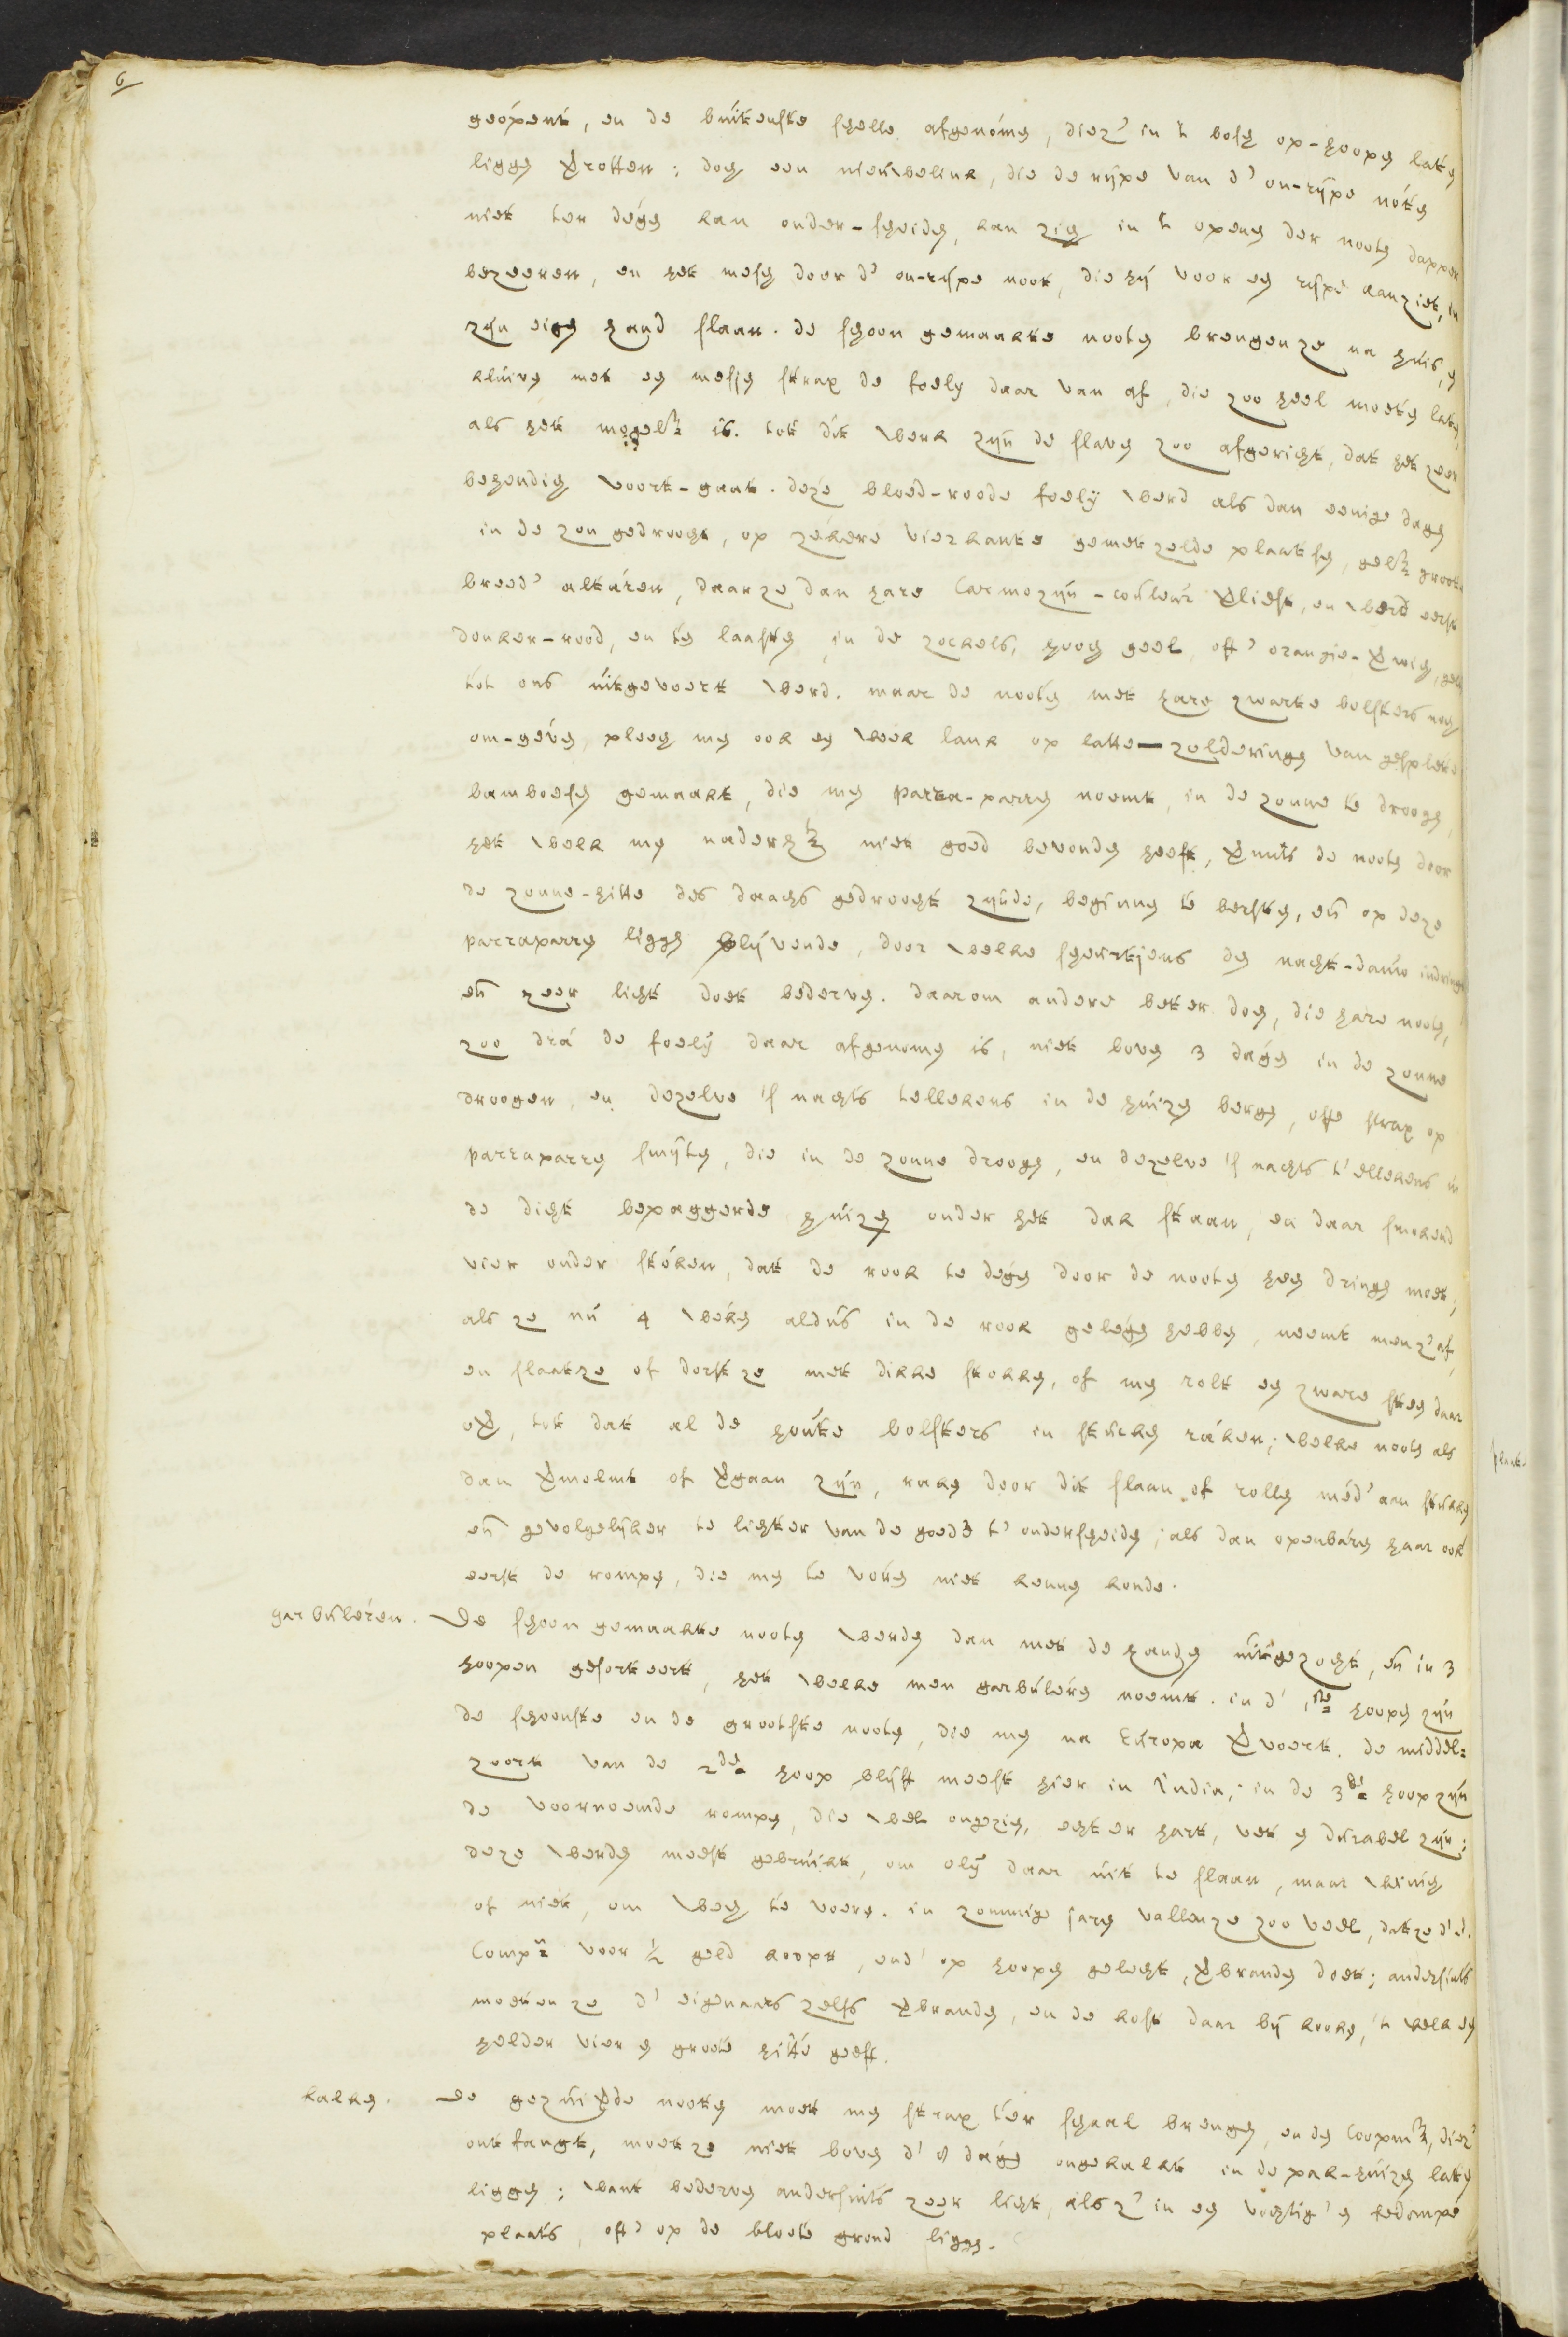 6
geópent, en de búitenste schelle afgenómen, diez' in 't bosch op-hoopen laten
liggen verrotten; doch een nieuwelink, die de rijpe van d' on-rijpe nóten
niet ter dégen kan onder-scheiden, kan zich in 't openen der nooten dapper
bezeeren, en het mesch door d' on-rijpe noot, die hij voor een rijpe aanziet, in
zijn eigen hand slaan. de schoon gemaakte nooten brengenze na húis, en
klúiven met een mesjen strax de foely daar van af, die zoo heel moeten laten,
als het mogelijk is. tot dit werk zijn de slaven zoo afgericht, dat het zeer
behendich voort-gaat. deze bloed-roode foelij werd als dan eenige dagen
in de zon gedroocht, op zekere vierkante gemetzelde plaatsen, gelijk groote
breed' altáren, daarze dan hare Carmozijn-coúleúr verliest, en werd eerst
donker-rood, en ten laasten, in de zockels, hooch geel, oft' orangie-verwich, gelijk
tot ons úitgevoert werd. maar de nooten met hare zwarte bolsters noch
om-géven, pleech men ook een week lank op latte-zolderingen van gespleten
bamboesen gemaakt, die men parra-parren noemt, in de zonne te droogen,
het welk men naderhand niet goed bevonden heeft, vermits de nooten door
de zonne-hitte des daachs gedroocht zijnde, beginnen te bersten, en op deze
parraparren liggen blijvende, door welke scheúrtjens den nacht-daúw indringt
en zeer licht doet bederven. daarom andere beter doen, die hare nooten,
zoo drá de foelij daar afgenomen is, niet boven 3 dágen in de zonne
droogen, en dezelve 's nachts tellekens in de húizen bergen, ofte strax op
parraparren smijten, die in de zonne droogen, en dezelve 's nachts t' ellekens in
de dicht bepaggerde húizen onder het dak staan, en daar smokend
vier onder stóken, dat de rook te dégen door de nooten heen dringen moet,
als ze nú 4 wéken aldús in de rook gelégen hebben, neemt men z' af,
en slaatze of dorst ze met dikke stokken, of men rolt een zware steen daar
over, tot dat al de hoúte bolsters in stúcken ráken; welke nooten als
dan vermolmt of vergaan zijn, raken door dit slaan of rollen méd' aan stúkken
en gevolgelijker te lichter van de goede t' onderscheiden; als dan openbáren haar ook
eerst de rompen, die men te vóren niet kennen konde.
garbúléren. De schoon gemaakte nooten werden dan met de handen úitgezocht, en in 3
hoopen gesorteert, het welke men garbúléren noemt. in d' 1ste hoopen zijn
de schoonste en de grootste nooten, die men na Eúropa vervoert. de middel=
zoort van de 2de hoop blijft meest hier in India; in de 3de hoop zijn
de voornoemde rompen, die wel ongezien, echter hart, vet en dúrabel zijn;
deze werden meest gebrúikt, om olij daar úit te slaan, maar weinich
of niet, om wech te voeren. in zommige jaren vallenze zoo veel, datze d' E.
Comp.e voor ½ geld koopt, end' op hoopen gelecht, verbranden doet; andersints
moeten ze d' eigenaars zelfs verbranden, en de kost daar bij kooken, 't welk een
helder vier en groote hitte geeft.
kalken. De gezúiverde nooten moet men strax ter schaal brengen, en den Coopman, diez'
ontfangt, moet ze niet boven d' 8 dagen ongekalkt in de pak-húizen laten
liggen; want bederven andersints zeer licht, als z' in een vochtig' en bedompe
plaats, oft' op de bloote grond liggen.